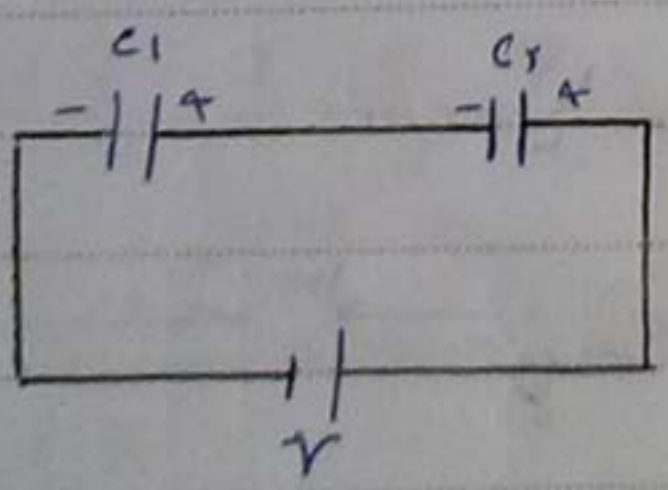 C1 C۲
- + - +
V